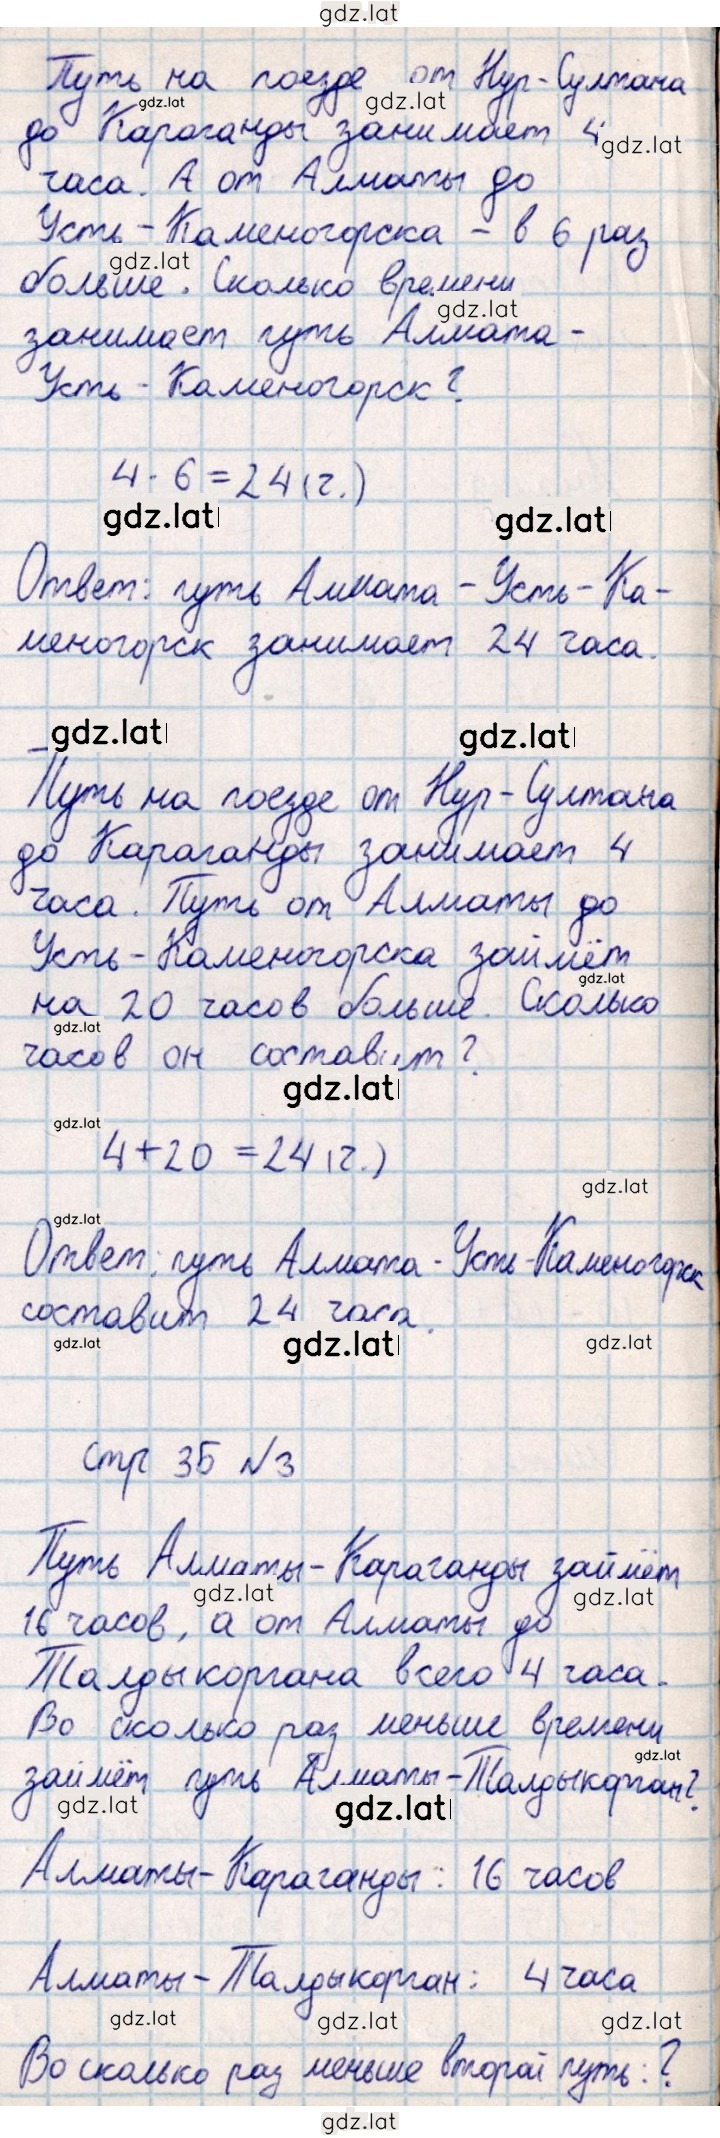 gdz.lat
Путь на поезде от Нур-Султана
gdz.lat gdz.lat
до Караганды занимает 4
gdz.lat
часа. А от Алматы до
Усть-Каменогорска - в 6 раз
gdz.lat
больше. Сколько времени
gdz.lat
занимает путь Алмата-
Усть-Каменогорск?
4 · 6 = 24 (ч.)
gdz.lat gdz.lat
Ответ: путь Алмата - Усть-Ка-
меногорск занимает 24 часа.
gdz.lat gdz.lat
Путь на поезде от Нур-Султана
до Караганды занимает 4
часа. Путь от Алматы до
Усть-Каменогорска займёт
gdz.lat
на 20 часов больше. Сколько
gdz.lat
часов он составит?
gdz.lat
gdz.lat
4+20 = 24 (ч.)
gdz.lat
gdz.lat
Ответ: путь Алмата-Усть-Каменогорск
составит 24 часа.
gdz.lat gdz.lat gdz.lat
стр 35 №3
Путь Алматы-Караганды займёт
gdz.lat gdz.lat
16 часов, а от Алматы до
Талдыкоргана всего 4 часа.
Во сколько раз меньше времени
gdz.lat
займёт путь Алматы-Талдыкорган?
gdz.lat gdz.lat
Алматы-Караганды: 16 часов
Алматы-Талдыкорган: 4 часа
gdz.lat gdz.lat gdz.lat
Во сколько раз меньше второй путь: ?
gdz.lat